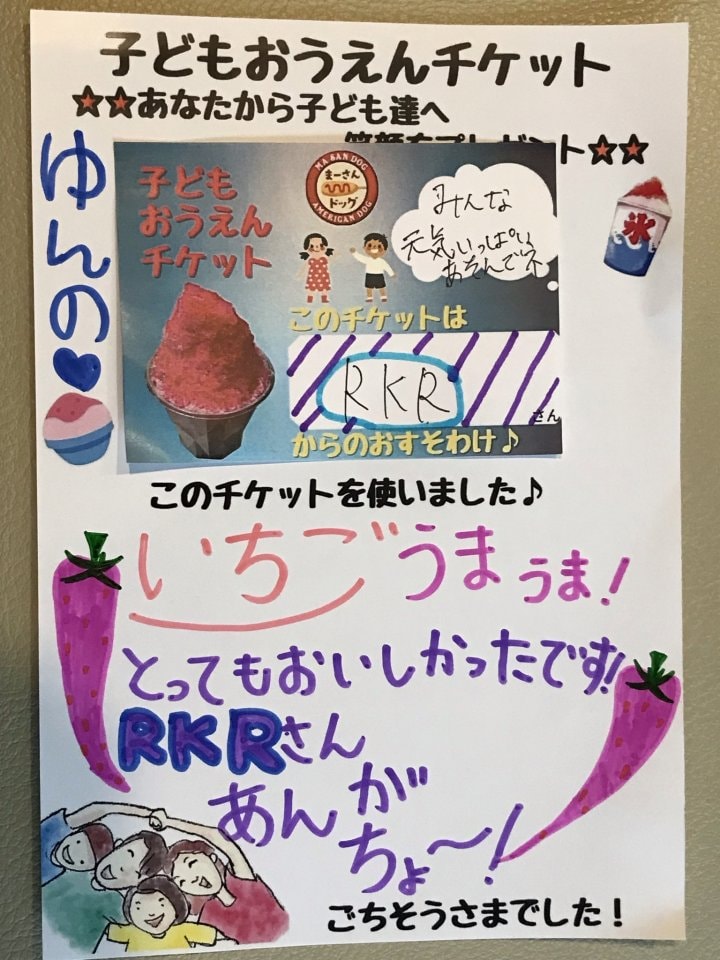 子どもおうえんチケット
★★あなたから子ども達へ
笑顔をプレゼント★★
ゆんの♥
子ども
おうえん
チケット
MA SAN DOG
まーさん
ドッグ
AMERICAN DOG
みんな
元気いっぱい
あそんでネ
氷
このチケットは
RKR
さん
からのおすそわけ♪
このチケットを使いました♪
いちごうまうま!
とってもおいしかったです!
RKRさん
あんが
ちょ〜!
ごちそうさまでした!